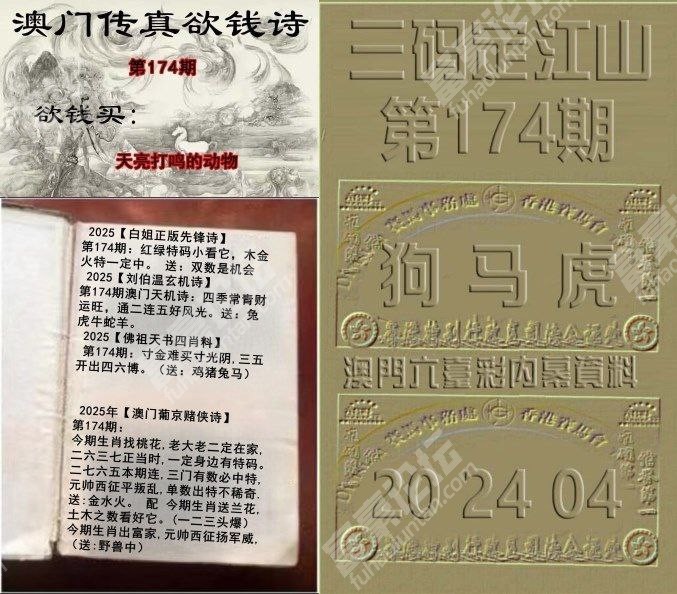 澳门传真欲钱诗
第174期
欲钱买：
天亮打鸣的动物
2025【白姐正版先锋诗】
第174期：红绿特码小看它，木金
火特一定中。 送：双数是机会
2025【刘伯温玄机诗】
第174期澳门天机诗：四季常肯财
运旺，通二连五好风光。送：兔
虎牛蛇羊。
2025【佛祖天书四肖料】
第174期：寸金难买寸光阴,三五
开出四六博。（送：鸡猪兔马）
2025年【澳门葡京赌侠诗】
第174期：
今期生肖找桃花,老大老二定在家,
二六三七正当时,一定身边有特码。
二七六五本期连,三门有数必中特,
元帅西征平叛乱,单数出特不稀奇.
送:金水火。 配 今期生肖送兰花,
土木之数看好它。（一二三头爆）
今期生肖出富家,元帅西征扬军威,
(送:野兽中)
三码定江山
第174期
香港賽馬會
狗 马 虎
澳門六合彩内幕資料
香港賽馬會
20 24 04